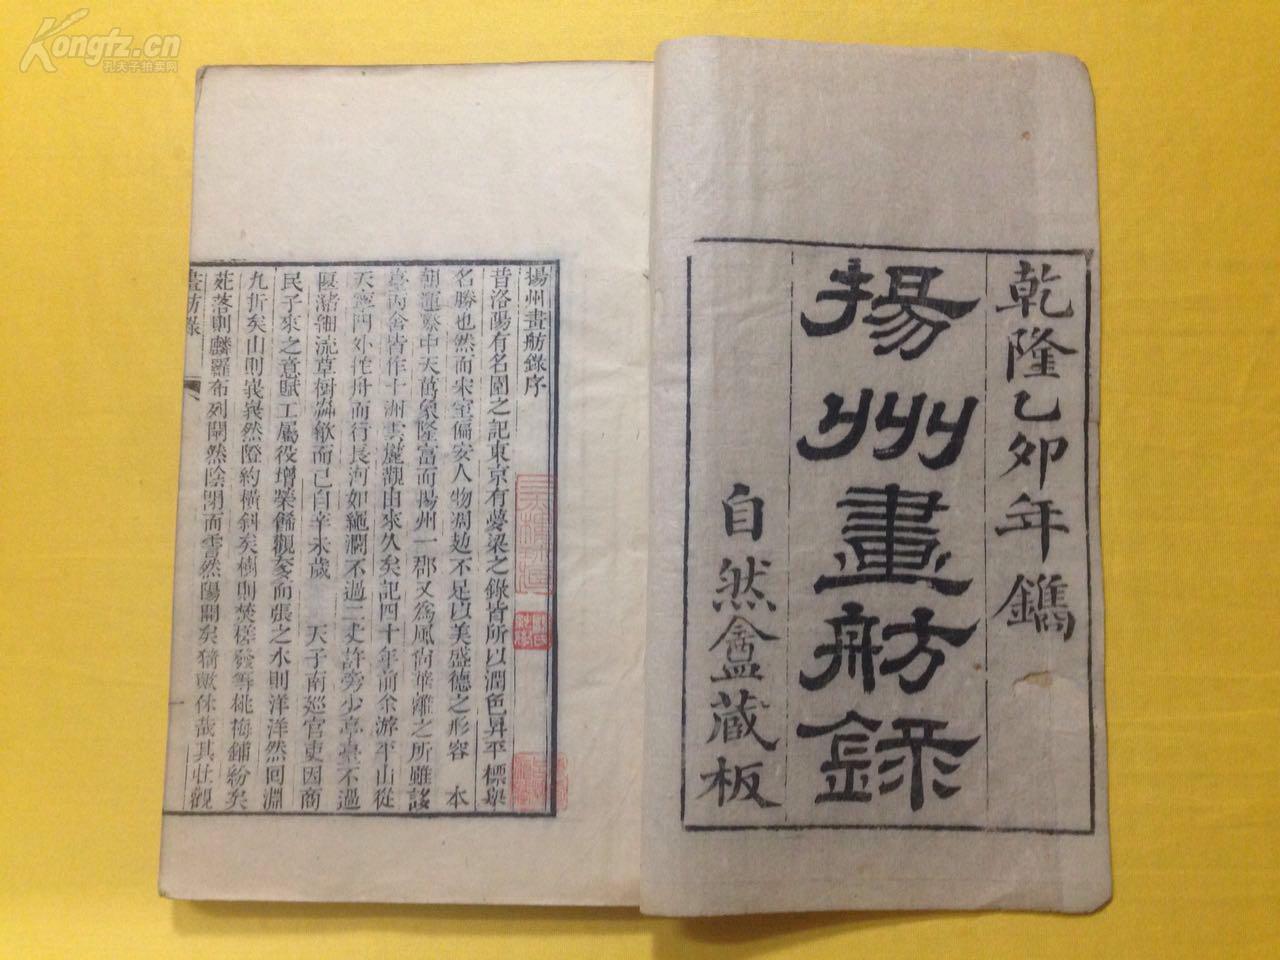 Kongfz.cn
孔夫子拍卖网
乾隆乙卯年鐫
揚州畫舫錄
自然盦藏板
揚州畫舫錄序
昔洛陽有名園之記東京有夢梁之錄皆所以潤色昇平標舉
名勝也然而宋室偏安人物凋勊不足以美盛德之形容 本
朝運際中天萬象隆富而揚州一郡又為風尚華離之所雖諺
臺丙舍皆作十洲雲麓觀由來久矣記四十年前余游平山從
天寧門外挖舟而行長河如繩濶不過二丈許旁少亭臺不過
匽潴細流草樹蕪歛而已自辛未歲 天子南巡官吏因商
民子來之意賦工屬役增榮飾觀奓而張之水則洋洋然回淵
九折矣山則峩峩然隥約橫斜矣樹則焚槎發等桃梅鋪紛矣
苑落則麟羅布列閘然陰閉而霅然陽開矣猗歟休哉其壯觀
畫舫錄